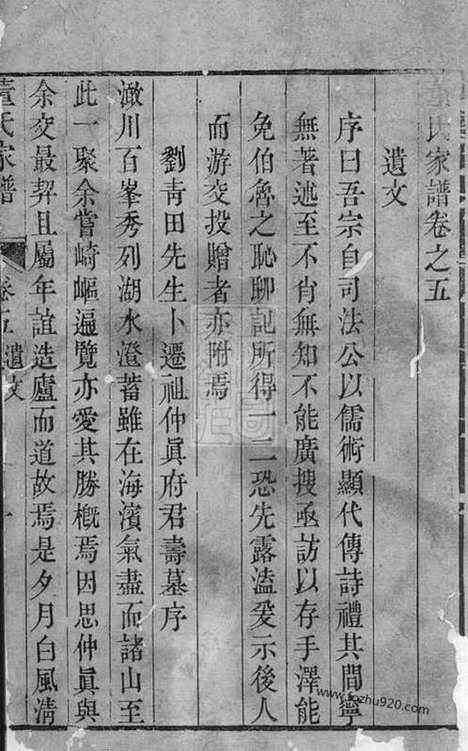 氏家譜卷之五
遺文
序曰吾宗自司法公以儒術顯代傳詩禮其間寧
無著述至不肖無知不能廣搜亟訪以存手澤能
免伯魯之恥聊記所得一二恐先露溘爰示後人
而游交投贈者亦附焉
劉青田先生卜遷祖仲眞府君壽墓序
澉川百峯秀列湖水澄蓄雖在海濱氣盡而諸山至
此一聚余嘗崎嶇遍覽亦愛其勝概焉因思仲眞與
余交最契且屬年誼造廬而道故焉是夕月白風清
董氏家譜 卷五 遺文 一
www.fozhu920.com